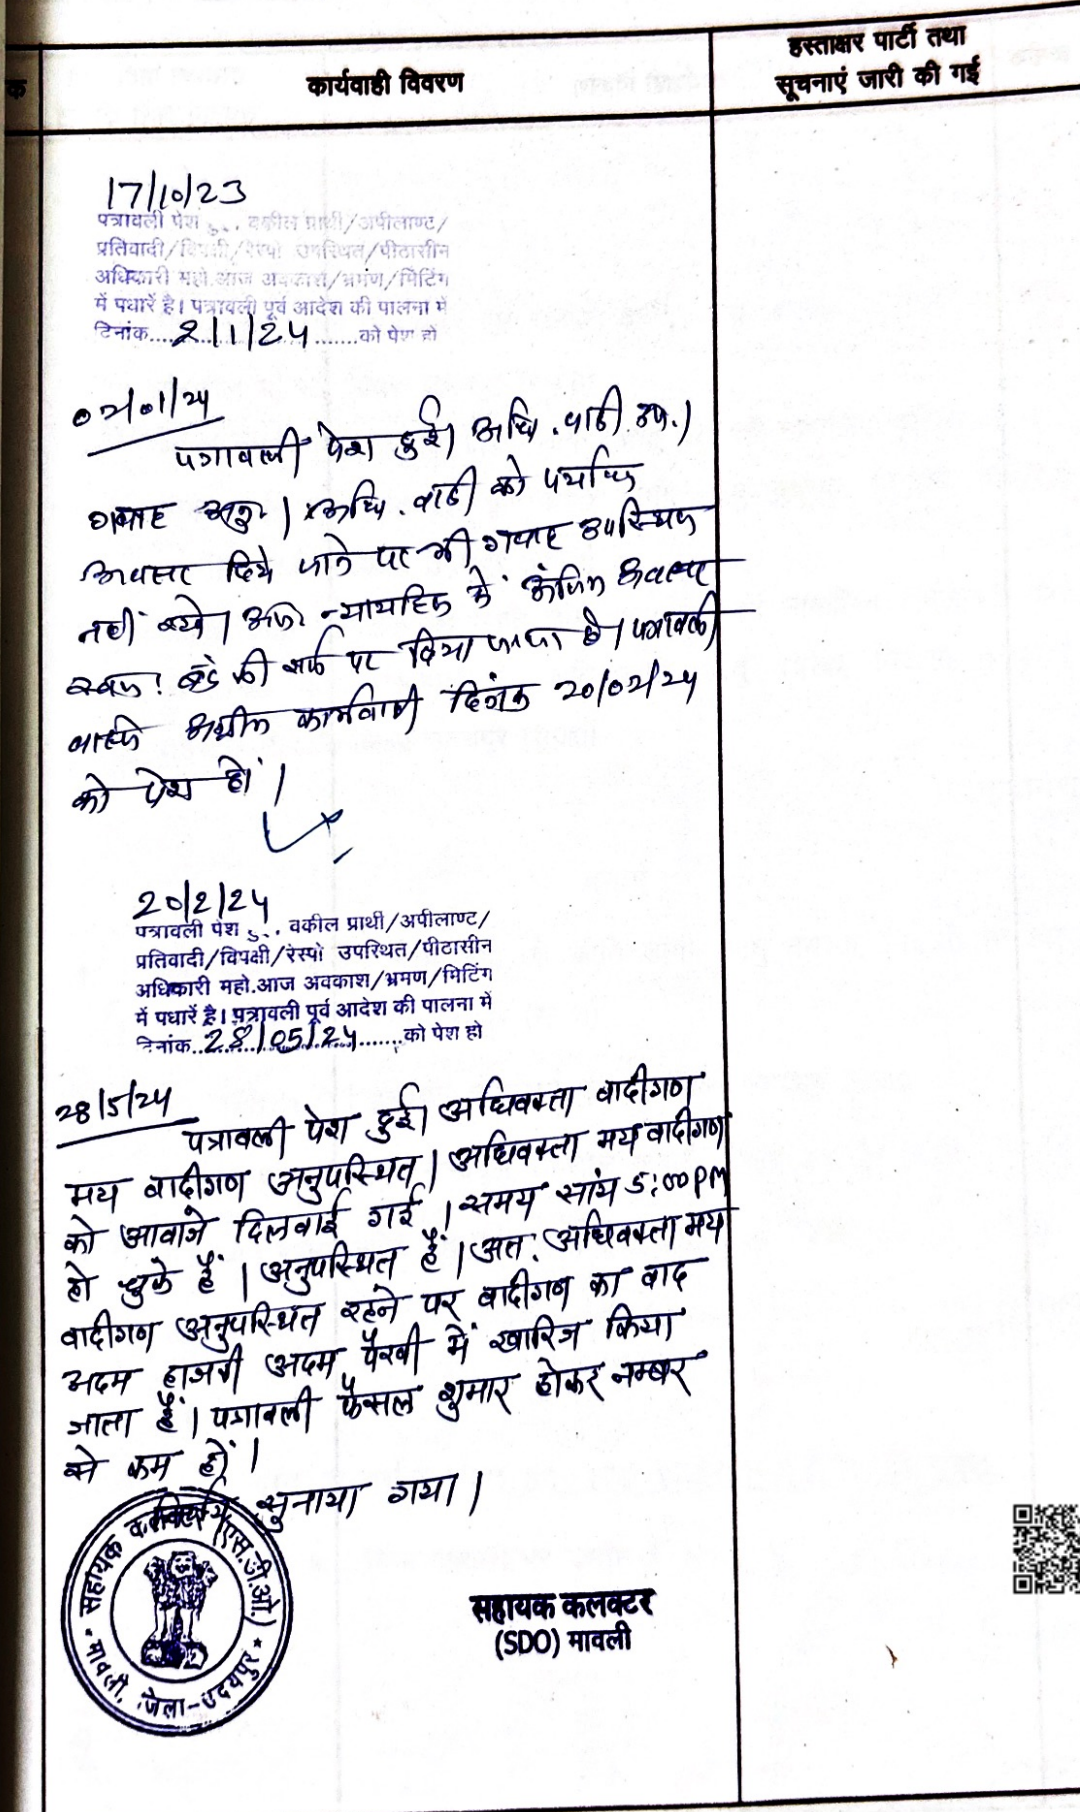 क
कार्यवाही विवरण
हस्ताक्षर पार्टी तथा
सूचनाएं जारी की गई
17/10/23
पत्रावली पेश हु.. वकील प्रार्थी/अपीलाण्ट/
प्रतिवादी/विपक्षी/रेस्पो उपस्थित/पीठासीन
अधिकारी महो.आज अवकाश/भ्रमण/मिटिंग
में पधारें है। पत्रावली पूर्व आदेश की पालना में
दिनांक....2/1/24.......को पेश हो
02/01/24
पत्रावली पेश हुई। अधि. वादी उप.।
गवाह अनु.। अधि. वादी को पर्याप्त
अवसर दिये जाने पर भी गवाह उपस्थित
नहीं आये। अतः न्यायहित में अंतिम अवसर
की शर्त पर दिया जाता है। पत्रावली
वास्ते अग्रीम कार्यवाही दिनांक 20/02/24
को पेश हो।
20/2/24
पत्रावली पेश हु.. वकील प्रार्थी/अपीलाण्ट/
प्रतिवादी/विपक्षी/रेस्पो उपस्थित/पीठासीन
अधिकारी महो.आज अवकाश/भ्रमण/मिटिंग
में पधारें है। पत्रावली पूर्व आदेश की पालना में
दिनांक..28/05/24.......को पेश हो
28/5/24
पत्रावली पेश हुई। अधिवक्ता वादीगण
मय वादीगण अनुपस्थित। अधिवक्ता मय वादीगण
को आवाजे दिलवाई गई। समय सांय 5:00 PM
हो चुके हैं। अनुपस्थित हैं। अतः अधिवक्ता मय
वादीगण अनुपस्थित रहने पर वादीगण का वाद
अदम हाजरी अदम पैरवी में खारिज किया
जाता हैं। पत्रावली फैसल शुमार होकर नम्बर
से कम हों।
निर्णय सुनाया गया।
सहायक कलक्टर (एस.डी.ओ.)
मावली, जिला-उदयपुर
सहायक कलक्टर
(SDO) मावली